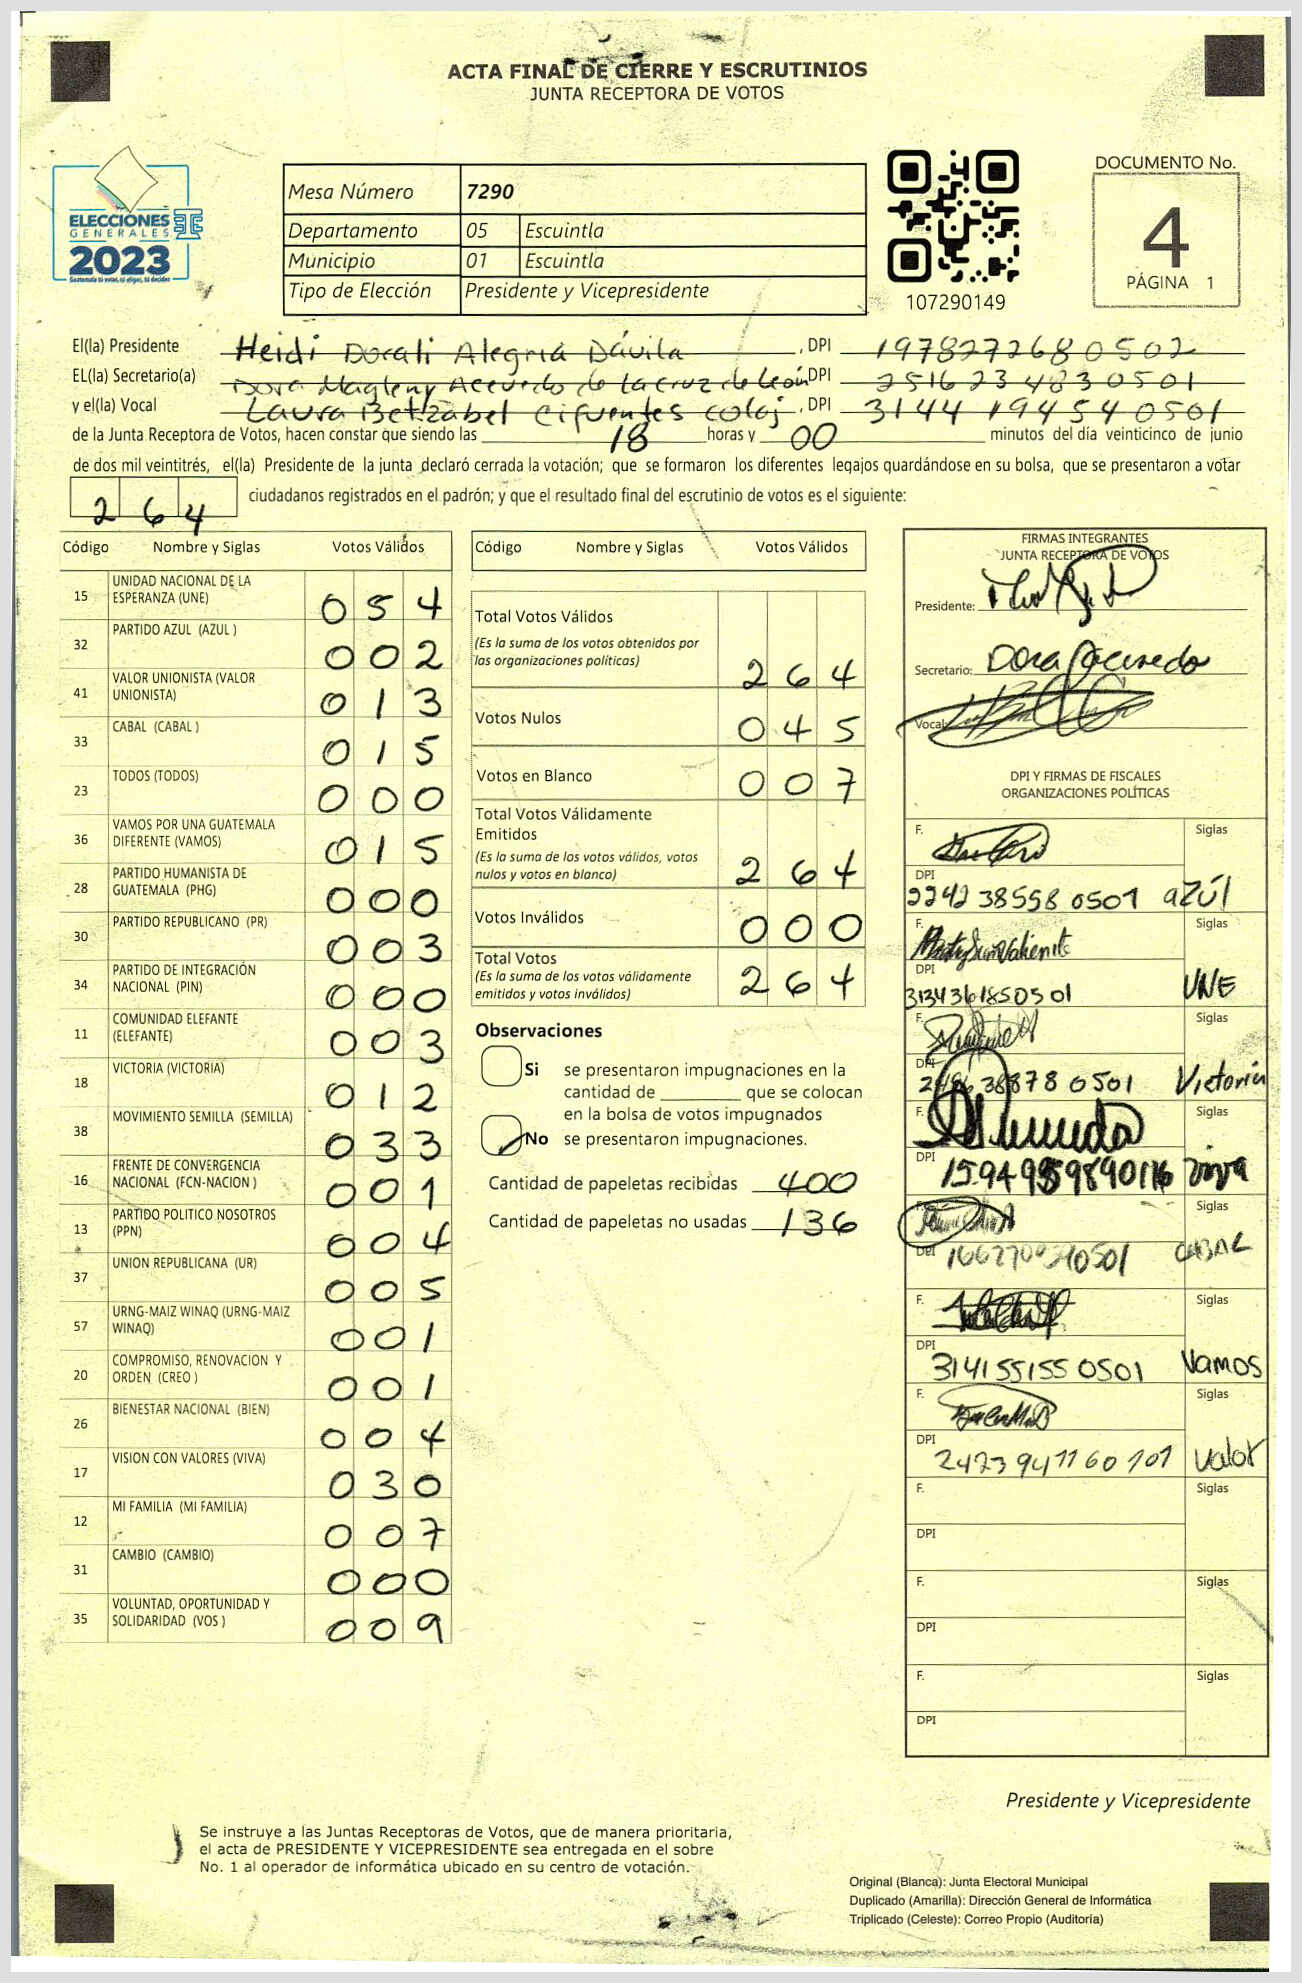 ACTA FINAL DE CIERRE Y ESCRUTINIOS
JUNTA RECEPTORA DE VOTOS
ELECCIONES
GENERALES
2023
Guatemala tú votas, tú eliges, tú decides
Mesa Número 7290
Departamento 05 Escuintla
Municipio 01 Escuintla
Tipo de Elección Presidente y Vicepresidente
107290149
DOCUMENTO No.
4
PÁGINA 1
El(la) Presidente Heidi Dorali Alegria Dávila, DPI 1978272680502
EL(la) Secretario(a) Dora Magleny Acevedo de la cruz de león DPI 2516234830501
y el(la) Vocal Laura Betzabel Cifuentes coloj, DPI 3144194540501
de la Junta Receptora de Votos, hacen constar que siendo las 18 horas y 00 minutos del día veinticinco de junio
de dos mil veintitrés, el(la) Presidente de la junta declaró cerrada la votación; que se formaron los diferentes legajos guardándose en su bolsa, que se presentaron a votar
264 ciudadanos registrados en el padrón; y que el resultado final del escrutinio de votos es el siguiente:
Código Nombre y Siglas Votos Válidos
15 UNIDAD NACIONAL DE LA ESPERANZA (UNE) 054
32 PARTIDO AZUL (AZUL ) 002
41 VALOR UNIONISTA (VALOR UNIONISTA) 013
33 CABAL (CABAL ) 015
23 TODOS (TODOS) 000
36 VAMOS POR UNA GUATEMALA DIFERENTE (VAMOS) 015
28 PARTIDO HUMANISTA DE GUATEMALA (PHG) 000
30 PARTIDO REPUBLICANO (PR) 003
34 PARTIDO DE INTEGRACIÓN NACIONAL (PIN) 000
11 COMUNIDAD ELEFANTE (ELEFANTE) 003
18 VICTORIA (VICTORIA) 012
38 MOVIMIENTO SEMILLA (SEMILLA) 033
16 FRENTE DE CONVERGENCIA NACIONAL (FCN-NACION ) 001
13 PARTIDO POLITICO NOSOTROS (PPN) 004
37 UNION REPUBLICANA (UR) 005
57 URNG-MAIZ WINAQ (URNG-MAIZ WINAQ) 001
20 COMPROMISO, RENOVACION Y ORDEN (CREO ) 001
26 BIENESTAR NACIONAL (BIEN) 004
17 VISION CON VALORES (VIVA) 030
12 MI FAMILIA (MI FAMILIA) 007
31 CAMBIO (CAMBIO) 000
35 VOLUNTAD, OPORTUNIDAD Y SOLIDARIDAD (VOS ) 009
Código Nombre y Siglas Votos Válidos
Total Votos Válidos
(Es la suma de los votos obtenidos por
las organizaciones políticas) 264
Votos Nulos 045
Votos en Blanco 007
Total Votos Válidamente
Emitidos
(Es la suma de los votos válidos, votos
nulos y votos en blanco) 264
Votos Inválidos 000
Total Votos
(Es la suma de los votos válidamente
emitidos y votos inválidos) 264
Observaciones
Si se presentaron impugnaciones en la
cantidad de ________ que se colocan
en la bolsa de votos impugnados
No se presentaron impugnaciones.
Cantidad de papeletas recibidas 400
Cantidad de papeletas no usadas 136
FIRMAS INTEGRANTES
JUNTA RECEPTORA DE VOTOS
Presidente:
Secretario: Dora Acevedo
Vocal:
DPI Y FIRMAS DE FISCALES
ORGANIZACIONES POLÍTICAS
F. Siglas
DPI
2242 38558 0501 azúl
F. Siglas
DPI
3134361850501 UNE
F. Siglas
DPI
38878 0501 Victoria
F. Siglas
DPI
viva
F. Siglas
DPI
CABAL
F. Siglas
DPI
314155155 0501 Vamos
F. Siglas
DPI
2423 941160101 valor
F. Siglas
DPI
F. Siglas
DPI
F. Siglas
DPI
Presidente y Vicepresidente
Se instruye a las Juntas Receptoras de Votos, que de manera prioritaria,
el acta de PRESIDENTE Y VICEPRESIDENTE sea entregada en el sobre
No. 1 al operador de informática ubicado en su centro de votación.
Original (Blanca): Junta Electoral Municipal
Duplicado (Amarilla): Dirección General de Informática
Triplicado (Celeste): Correo Propio (Auditoría)